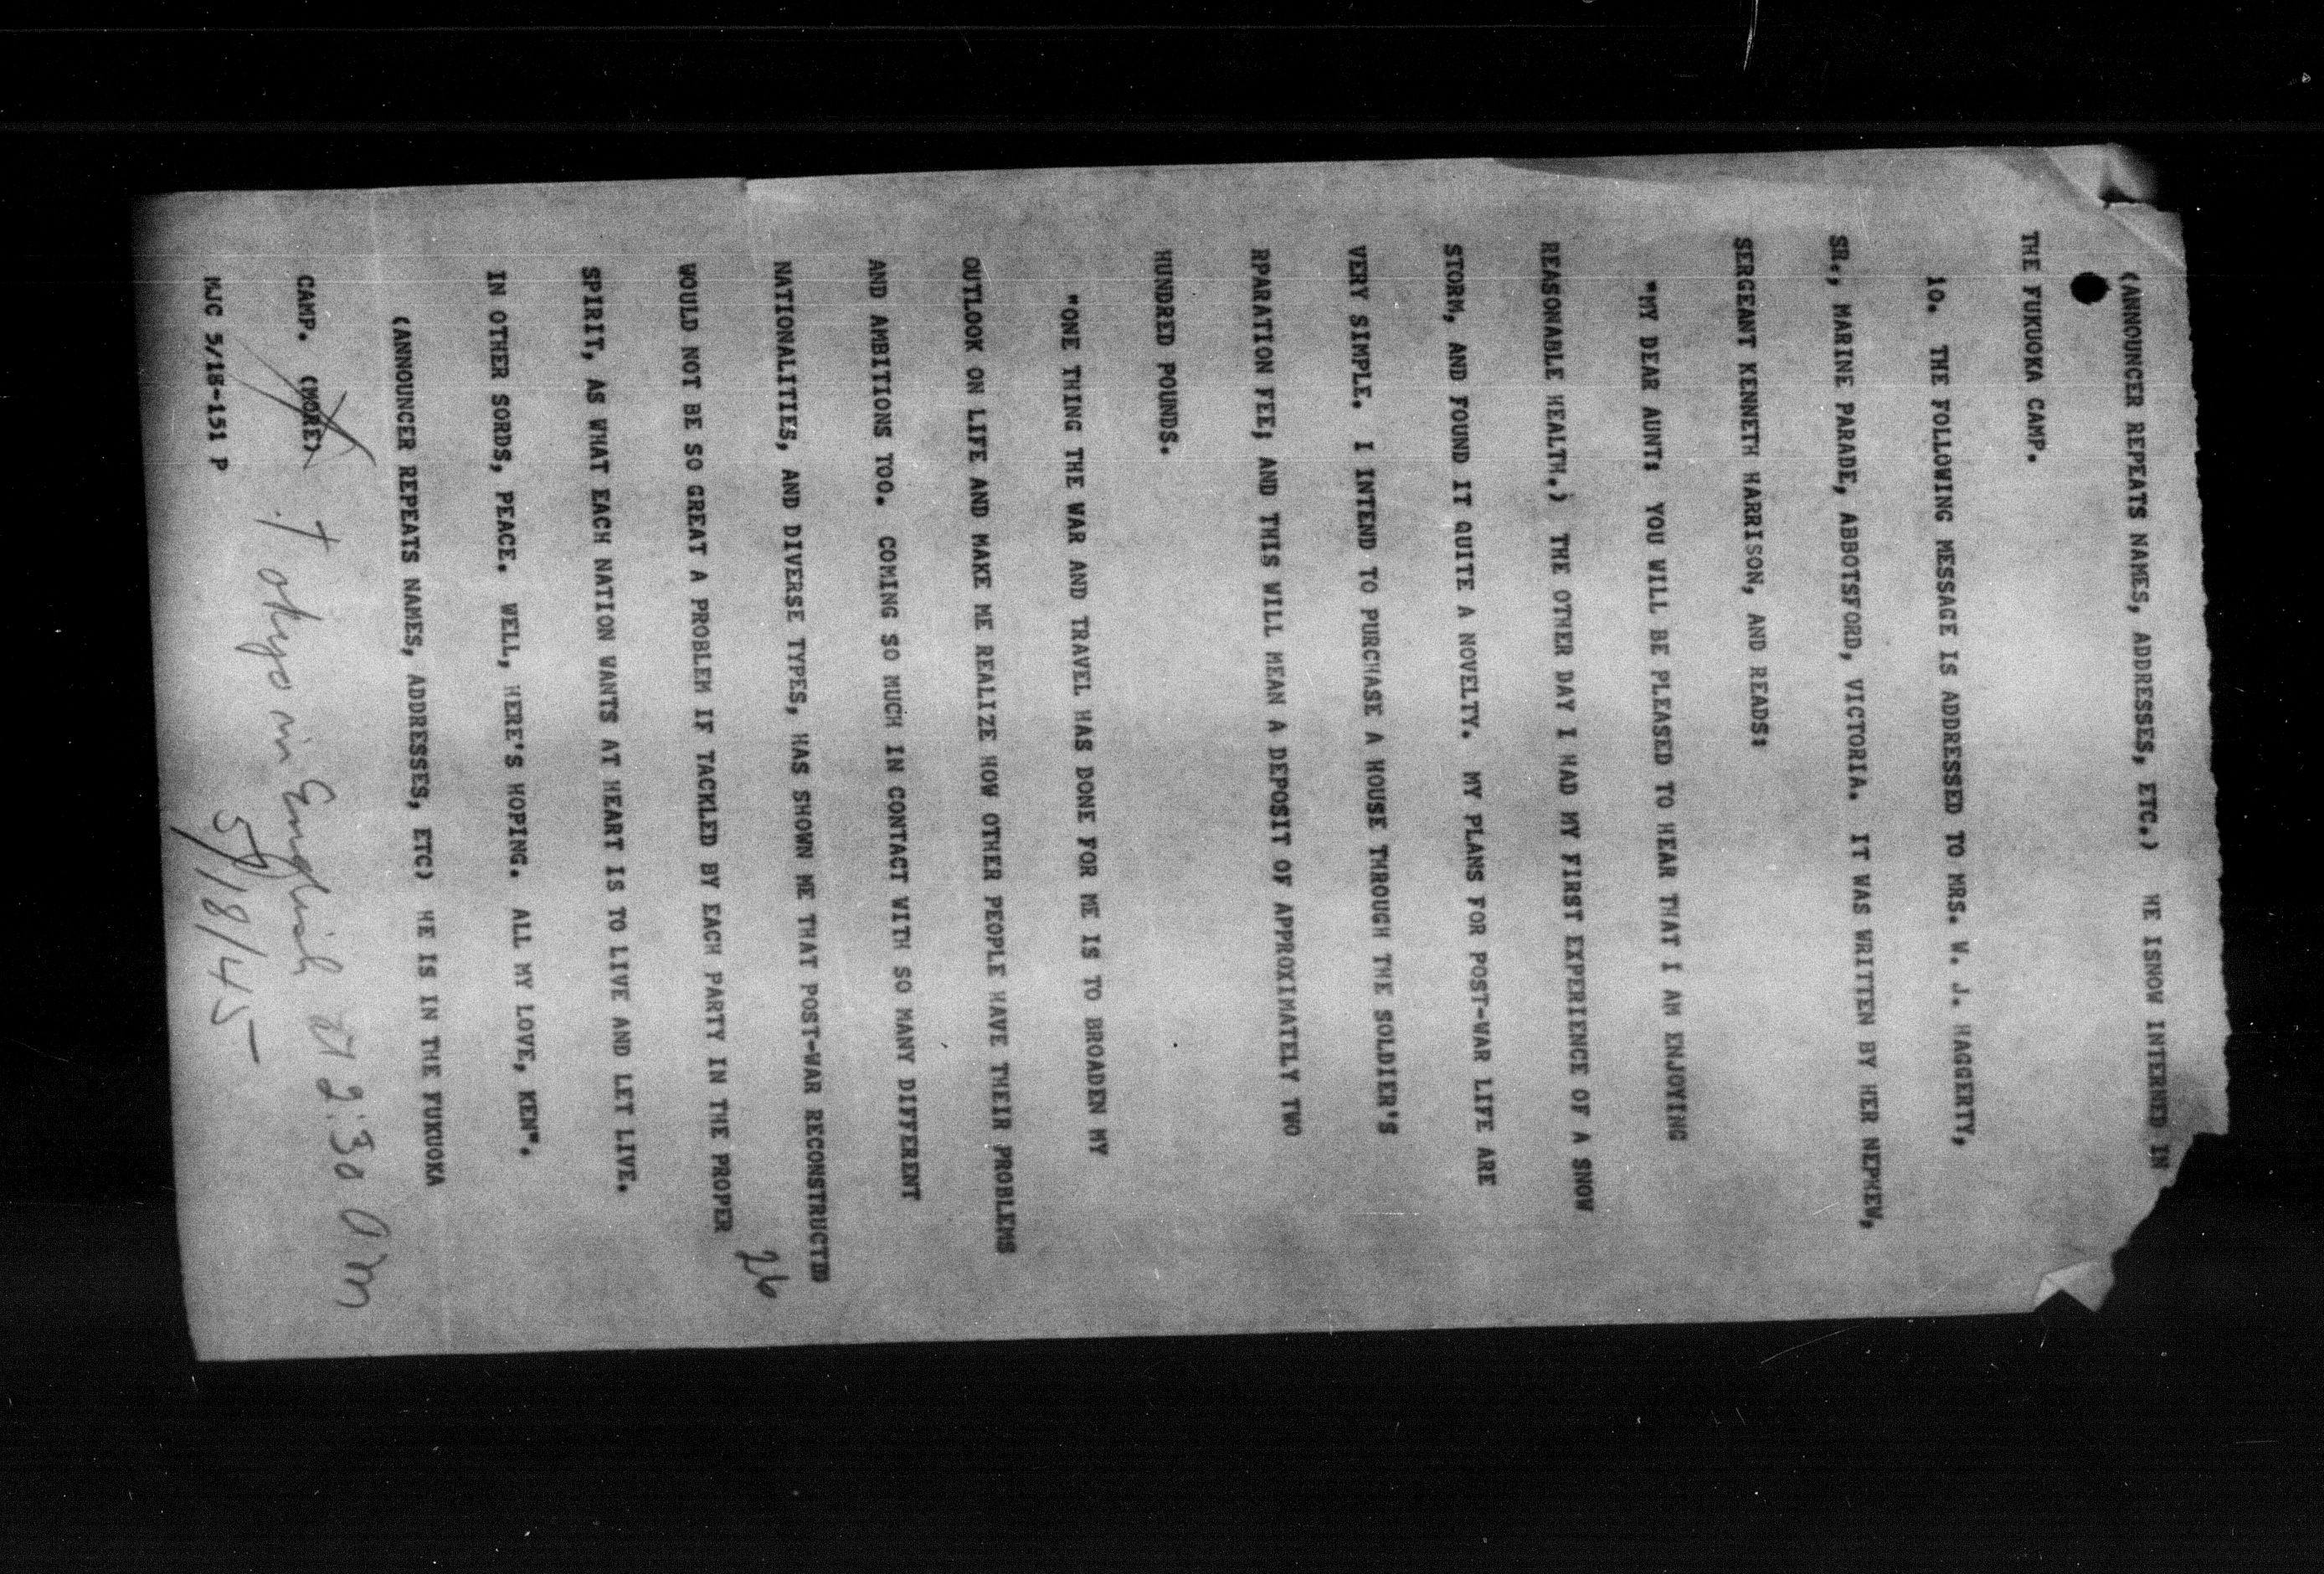 (ANNOUNCER REPEATS NAMES, ADDRESSES, ETC.) HE ISNOW INTERNED IN
THE FUKUOKA CAMP.
10. THE FOLLOWING MESSAGE IS ADDRESSED TO MRS. W. J. HAGGERTY,
SR., MARINE PARADE, ABBOTSFORD, VICTORIA. IT WAS WRITTEN BY HER NEPHEW,
SERGEANT KENNETH HARRISON, AND READS:
"MY DEAR AUNT: YOU WILL BE PLEASED TO HEAR THAT I AM ENJOYING
REASONABLE HEALTH.) THE OTHER DAY I HAD MY FIRST EXPERIENCE OF A SNOW
STORM, AND FOUND IT QUITE A NOVELTY. MY PLANS FOR POST-WAR LIFE ARE
VERY SIMPLE. I INTEND TO PURCHASE A HOUSE THROUGH THE SOLDIER'S
RPARATION FEE; AND THIS WILL MEAN A DEPOSIT OF APPROXIMATELY TWO
HUNDRED POUNDS.
"ONE THING THE WAR AND TRAVEL HAS DONE FOR ME IS TO BROADEN MY
OUTLOOK ON LIFE AND MAKE ME REALIZE HOW OTHER PEOPLE HAVE THEIR PROBLEMS
AND AMBITIONS TOO. COMING SO MUCH IN CONTACT WITH SO MANY DIFFERENT
NATIONALITIES, AND DIVERSE TYPES, HAS SHOWN ME THAT POST-WAR RECONSTRUCTED
WOULD NOT BE SO GREAT A PROBLEM IF TACKLED BY EACH PARTY IN THE PROPER
26
SPIRIT, AS WHAT EACH NATION WANTS AT HEART IS TO LIVE AND LET LIVE.
IN OTHER SORDS, PEACE. WELL, HERE'S HOPING. ALL MY LOVE, KEN".
(ANNOUNCER REPEATS NAMES, ADDRESSES, ETC) HE IS IN THE FUKUOKA
CAMP. (MORE)
Tokyo in English at 2:30 am
MJC 5/18-151 P
5/18/45